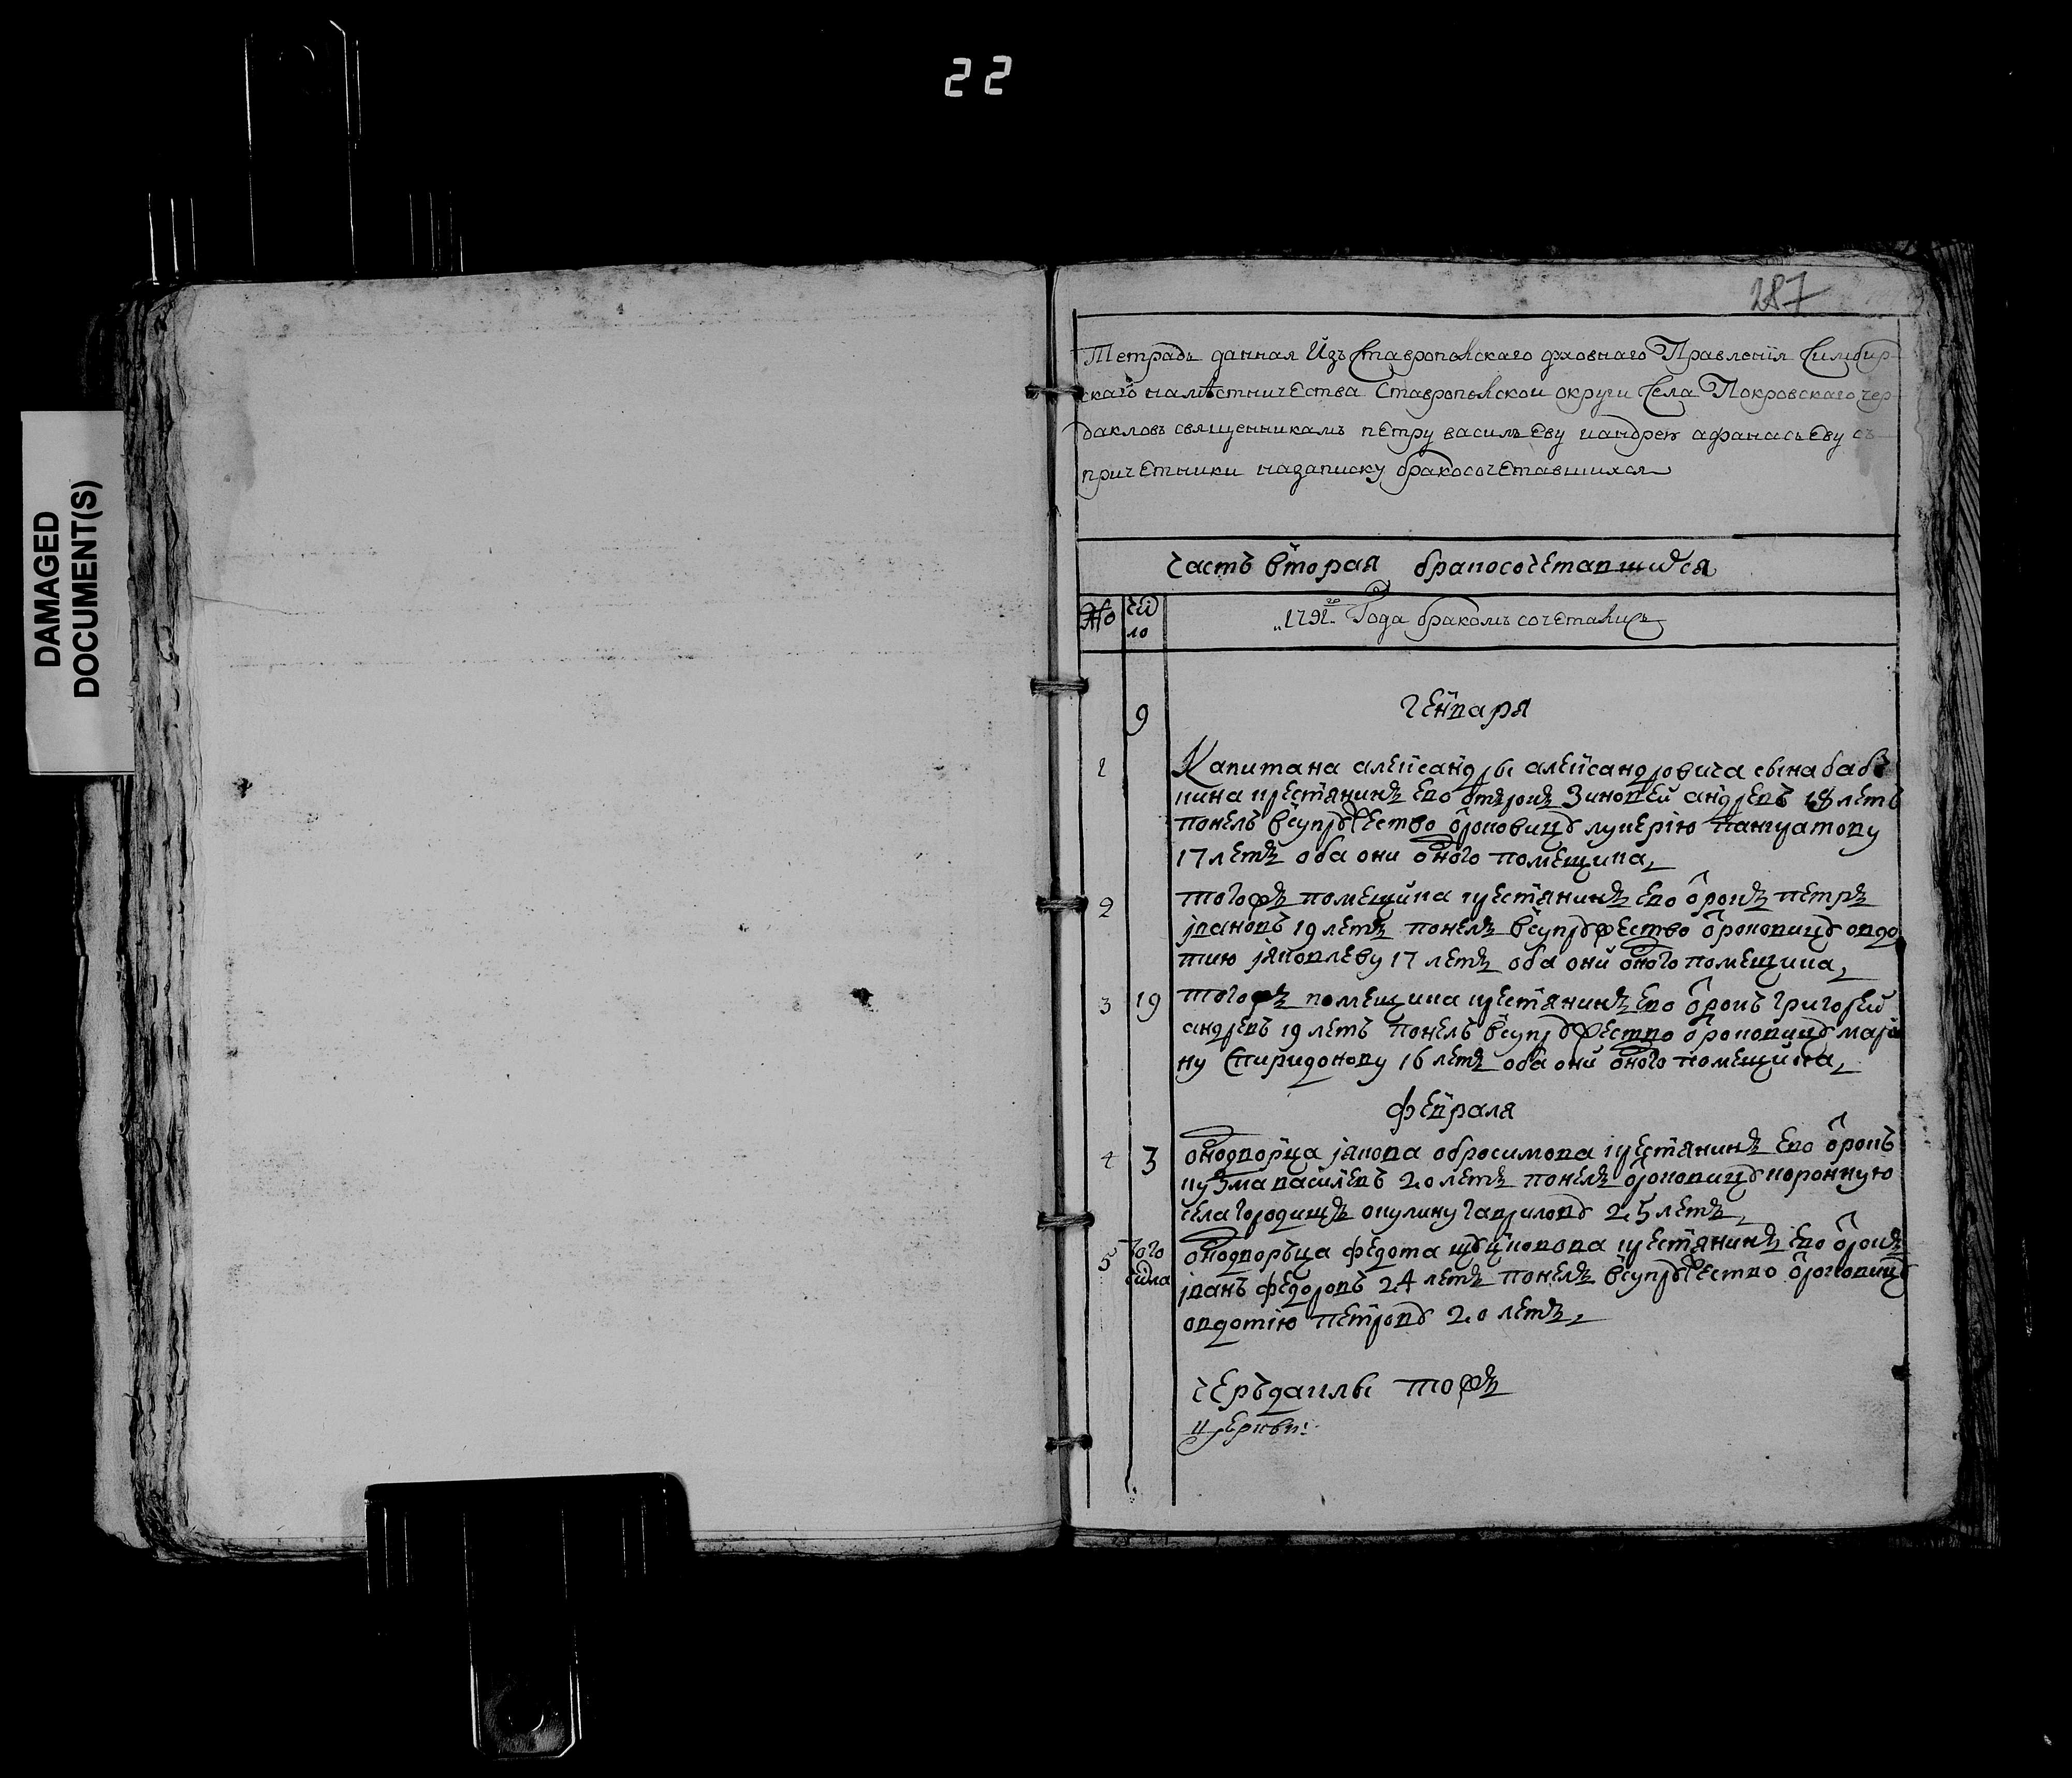 22
DAMAGED
DOCUMENT(S)
287
Тетрадь данная Изъ Ставропольскаго духовнаго Правленія Симбир-
скаго намѣстничества Ставропольской округи Села Покровскаго чер-
даклов священникамъ петру васильеву и андрею афанасьеву съ
причетники на записку бракосочетавшихся
часть вторая бракосочетавшихся
№ число
1791го Года бракомъ сочетались
9 генваря
1 Капитана александры александровича сына бабк
кина крестянинъ ево отрокъ Зиновей андреевъ 18 летъ
понелъ всупружество отроковицу лукерію панкратову
17 летъ оба они оного помещика
2 тогожъ помещика крестянинъ ево отрокъ петръ
івановъ 19 летъ понелъ всупружество отроковицу овдо
тию іяковлеву 17 летъ оба они оного помещика
3 19 тогожъ помещика крестянинъ ево отрокъ григорей
андреевъ 19 летъ понелъ всупружество отроковицу мари
ну Спиридонову 16 летъ оба они оного помещика
февраля
4 3 однодворца іякова обросимова крестянинъ ево отрокъ
кузма василевъ 20 летъ понелъ отроковицу коронную
села городищъ окулину гаврилову 25 летъ
5 того числа однодворъца федота крестянинъ ево отрокъ
іванъ федоровъ 24 летъ понелъ всупружество отроковицу
овдотію петрову 20 летъ
черъдаклы тожъ
церкви: